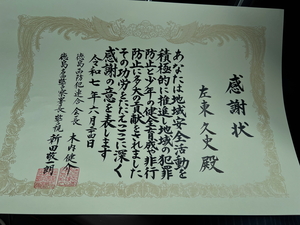 感謝状
左東久史殿
あなたは地域安全活動を
積極的に推進し地域の犯罪
防止と少年の健全育成非行
防止に多大な貢献をされました
その功労をたたえここに深く
感謝の意を表します
令和七年六月二十四日
徳島西防犯連合会会長 木内健介
徳島名西警察署長 警視 新田敬一朗